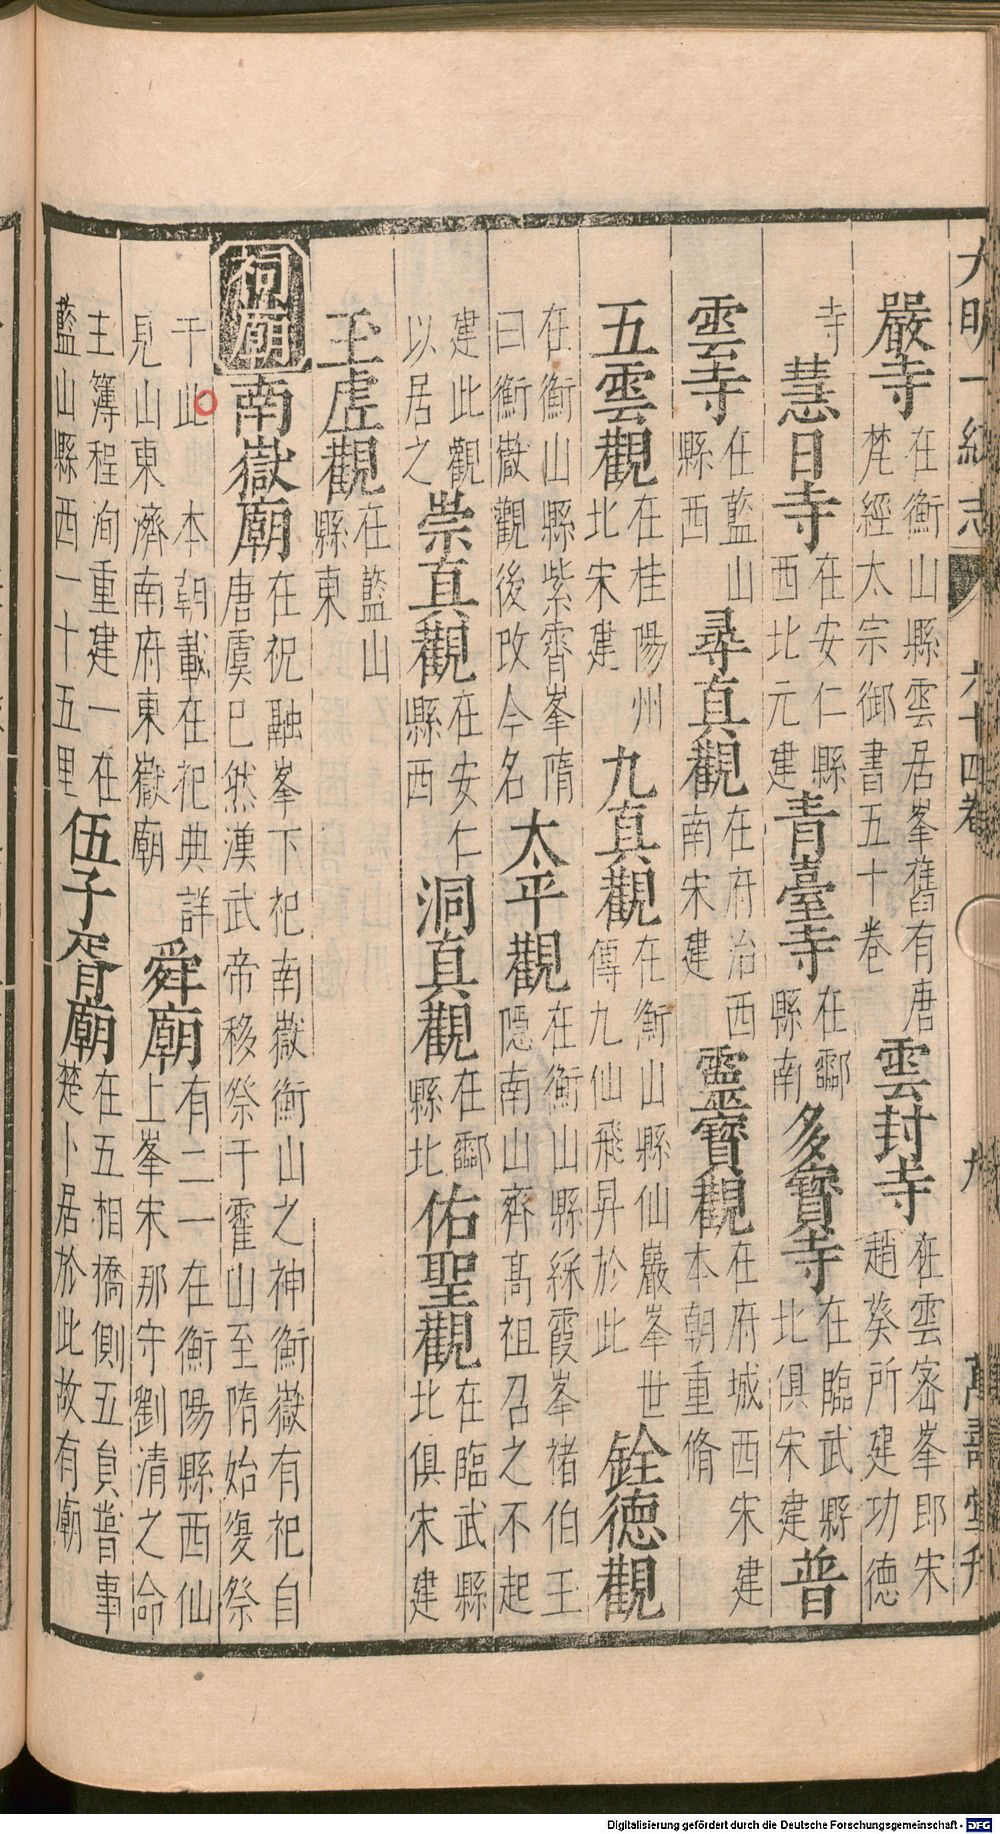 大明一統志 六十四卷 九 萬壽堂刊
嚴寺 在衡山縣雲居峯舊有唐 梵經太宗御書五十卷 雲封寺 在雲密峯郎宋 趙葵所建功德
寺 慧日寺 在安仁縣 西北元建 青臺寺 在酃 縣南 多寶寺 在臨武縣 北俱宋建 普
雲寺 在藍山 縣西 尋真觀 在府治西 南宋建 靈寶觀 在府城西宋建 本朝重脩
五雲觀 在桂陽州 北宋建 九真觀 在衡山縣仙巖峯世 傳九仙飛昇於此 銓德觀
在衡山縣紫霄峯隋 曰衡嶽觀後改今名 太平觀 在衡山縣綵霞峯褚伯玉 隱南山齊髙祖召之不起
建此觀 以居之 崇真觀 在安仁 縣西 洞真觀 在酃 縣北 佑聖觀 在臨武縣 北俱宋建
玉虛觀 在藍山 縣東
祠廟 南嶽廟 在祝融峯下祀南嶽衡山之神衡嶽有祀自 唐虞已然漢武帝移祭于霍山至隋始復祭
于此 本朝載在祀典詳 見山東濟南府東嶽廟 舜廟 有二一在衡陽縣西仙 上峯宋那守劉清之命
主簿程洵重建一在 藍山縣西一十五里 伍子胥廟 在五相橋側五員嘗事 楚卜居於此故有廟
Digitalisierung gefördert durch die Deutsche Forschungsgemeinschaft - DFG